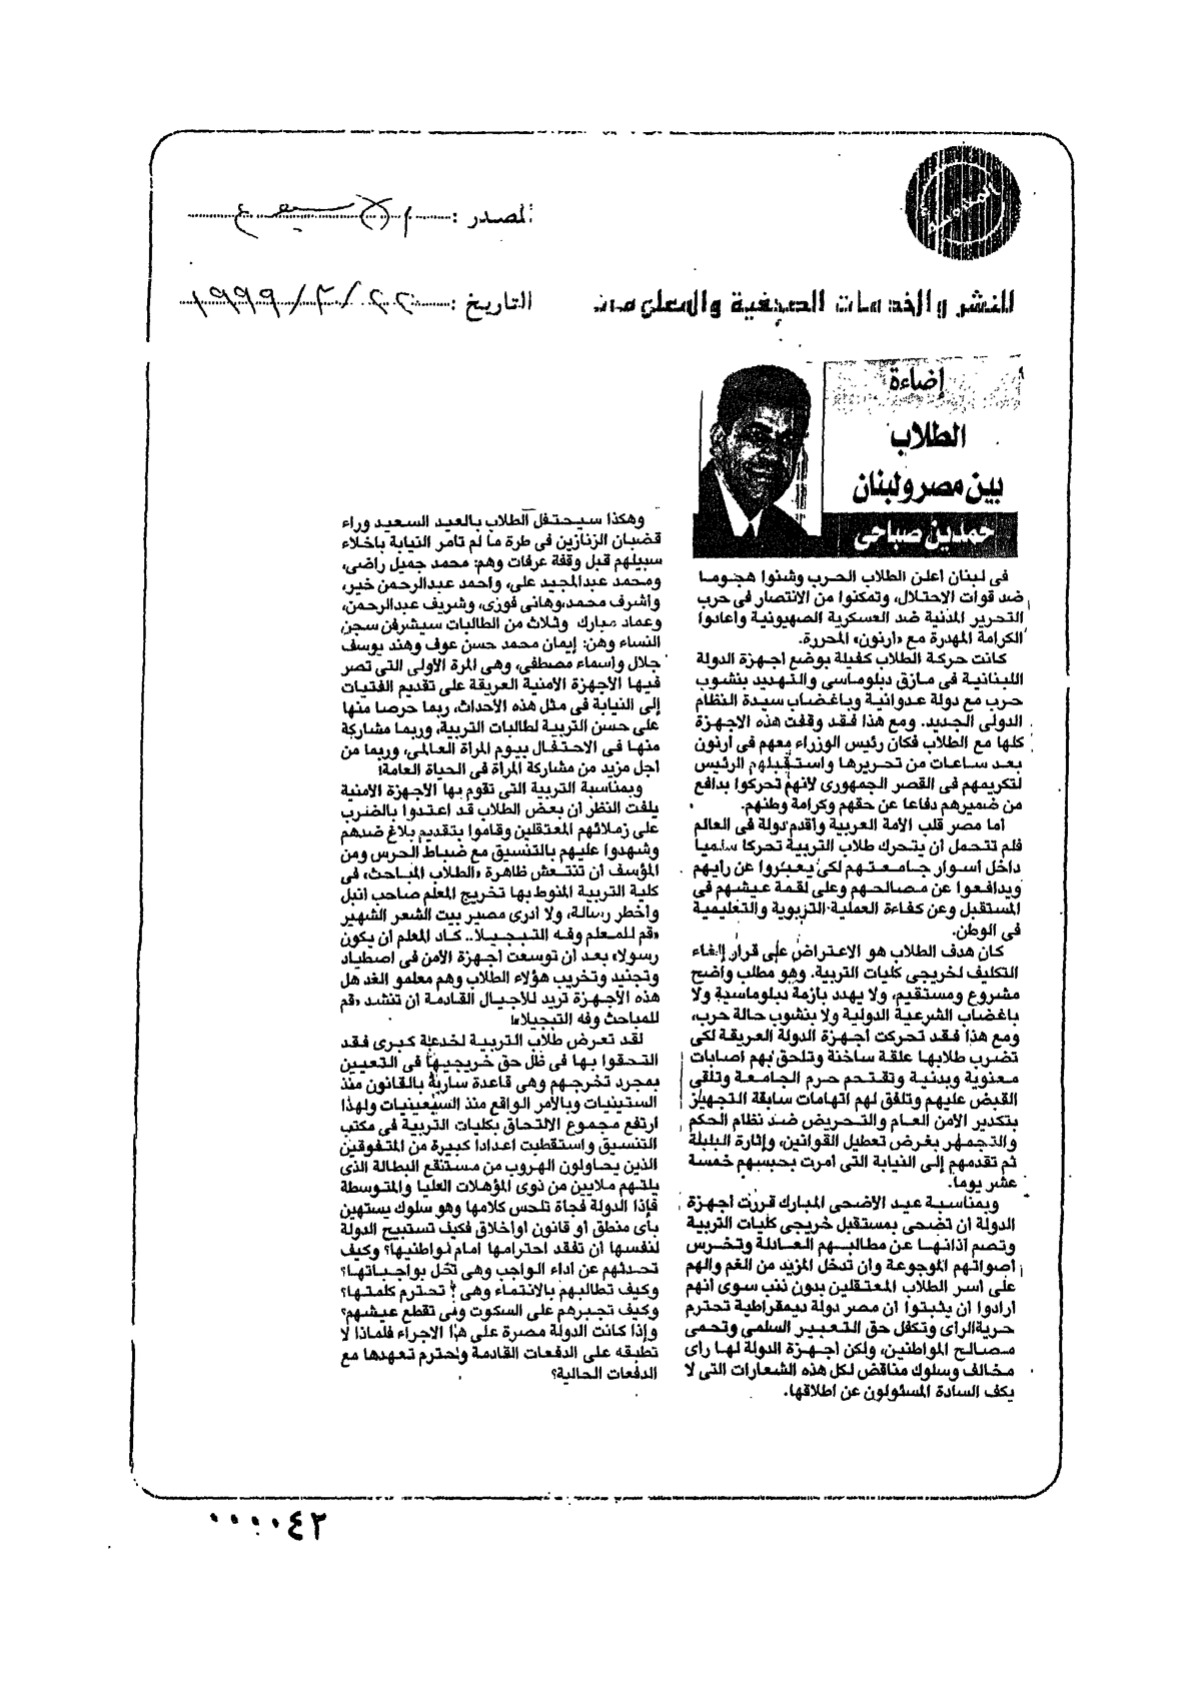 المصدر : الأسبوع
للنشر والخدمات الصحفية والمعلومات
التاريخ : ٢٢ / ٣ / ١٩٩٩
إضاءة
الطلاب
بين مصر ولبنان
حمدين صباحى
فى لبنان أعلن الطلاب الحرب وشنوا هجوما
ضد قوات الاحتلال، وتمكنوا من الانتصار فى حرب
التحرير المدنية ضد العسكرية الصهيونية وأعادوا
الكرامة المهدرة مع «أرنون» المحررة.
كانت حركة الطلاب كفيلة بوضع أجهزة الدولة
اللبنانية فى مأزق دبلوماسى والتهديد بنشوب
حرب مع دولة عدوانية وبإغضاب سيدة النظام
الدولى الجديد. ومع هذا فقد وقفت هذه الأجهزة
كلها مع الطلاب فكان رئيس الوزراء معهم فى أرنون
بعد ساعات من تحريرها واستقبلهم الرئيس
لتكريمهم فى القصر الجمهورى لأنهم تحركوا بدافع
من ضميرهم دفاعا عن حقهم وكرامة وطنهم.
أما مصر قلب الأمة العربية وأقدم دولة فى العالم
فلم تتحمل أن يتحرك طلاب التربية تحركا سلميا
داخل أسوار جامعتهم لكى يعبئروا عن رأيهم
ويدافعوا عن مصالحهم وعلى لقمة عيشهم فى
المستقبل وعن كفاءة العملية التربوية والتعليمية
فى الوطن.
كان هدف الطلاب هو الاعتراض على قرار إلغاء
التكليف لخريجى كليات التربية. وهو مطلب واضح
مشروع ومستقيم، ولا يهدد بأزمة دبلوماسية ولا
بإغضاب الشرعية الدولية ولا بنشوب حالة حرب،
ومع هذا فقد تحركت أجهزة الدولة العريقة لكى
تضرب طلابها علقة ساخنة وتلحق بهم إصابات
معنوية وبدنية وتقتحم حرم الجامعة وتلقى
القبض عليهم وتلفق لهم اتهامات سابقة التجهيز
بتكدير الأمن العام والتحريض ضد نظام الحكم
والتجمهر بغرض تعطيل القوانين، وإثارة البلبلة
ثم تقدمهم إلى النيابة التى أمرت بحبسهم خمسة
عشر يوما.
وبمناسبة عيد الأضحى المبارك قررت أجهزة
الدولة أن تضحى بمستقبل خريجى كليات التربية
وتصم آذانها عن مطالبهم العادلة وتخرس
أصواتهم الموجوعة وأن تدخل المزيد من الغم والهم
على أسر الطلاب المعتقلين بدون ذنب سوى أنهم
أرادوا أن يثبتوا أن مصر دولة ديمقراطية تحترم
حرية الرأى وتكفل حق التعبير السلمى وتحمى
مصالح المواطنين، ولكن أجهزة الدولة لها رأى
مخالف وسلوك مناقض لكل هذه الشعارات التى لا
يكف السادة المسئولون عن اطلاقها.
وهكذا سيحتفل الطلاب بالعيد السعيد وراء
قضبان الزنازين فى طرة ما لم تأمر النيابة بإخلاء
سبيلهم قبل وقفة عرفات وهم: محمد جميل راضى،
ومحمد عبدالمجيد على، وأحمد عبدالرحمن خير،
وأشرف محمد، وهانى فوزى، وشريف عبدالرحمن،
وعماد مبارك وثلاث من الطالبات سيشرفن سجن
النساء وهن: إيمان محمد حسن عوف وهند يوسف
جلال وأسماء مصطفى، وهى المرة الأولى التى تصر
فيها الأجهزة الأمنية العريقة على تقديم الفتيات
إلى النيابة فى مثل هذه الأحداث، ربما حرصا منها
على حسن التربية لطالبات التربية، وربما مشاركة
منها فى الاحتفال بيوم المرأة العالمى، وربما من
أجل مزيد من مشاركة المرأة فى الحياة العامة!
وبمناسبة التربية التى تقوم بها الأجهزة الأمنية
يلفت النظر أن بعض الطلاب قد اعتدوا بالضرب
على زملائهم المعتقلين وقاموا بتقديم بلاغ ضدهم
وشهدوا عليهم بالتنسيق مع ضباط الحرس ومن
المؤسف أن تنتعش ظاهرة «الطلاب المباحث» فى
كلية التربية المنوط بها تخريج المعلم صاحب أنبل
وأخطر رسالة، ولا أدرى مصير بيت الشعر الشهير
«قم للمعلم وفه التبجيلا.. كاد المعلم أن يكون
رسولا» بعد أن توسعت أجهزة الأمن فى اصطياد
وتجنيد وتخريب هؤلاء الطلاب وهم معلمو الغد هل
هذه الأجهزة تريد للأجيال القادمة أن تنشد «قم
للمباحث وفه التبجيلا»!
لقد تعرض طلاب التربية لخدعة كبرى فقد
التحقوا بها فى ظل حق خريجيها فى التعيين
بمجرد تخرجهم وهى قاعدة سارية بالقانون منذ
الستينيات وبالأمر الواقع منذ السبعينيات ولهذا
ارتفع مجموع الالتحاق بكليات التربية فى مكتب
التنسيق واستقطبت أعدادا كبيرة من المتفوقين
الذين يحاولون الهروب من مستنقع البطالة الذى
يلتهم ملايين من ذوى المؤهلات العليا والمتوسطة
فإذا الدولة فجأة تلحس كلامها وهو سلوك يستهين
بأى منطق أو قانون أو أخلاق فكيف تستبيح الدولة
لنفسها أن تفقد احترامها أمام مواطنيها؟ وكيف
تحدثهم عن أداء الواجب وهى تخل بواجباتها؟
وكيف تطالبهم بالانتماء وهى لا تحترم كلمتها؟
وكيف تجبرهم على السكوت وهى تقطع عيشهم؟
وإذا كانت الدولة مصرة على هذا الإجراء فلماذا لا
تطبقه على الدفعات القادمة وتحترم تعهدها مع
الدفعات الحالية؟
٠٠٠٠٤٢